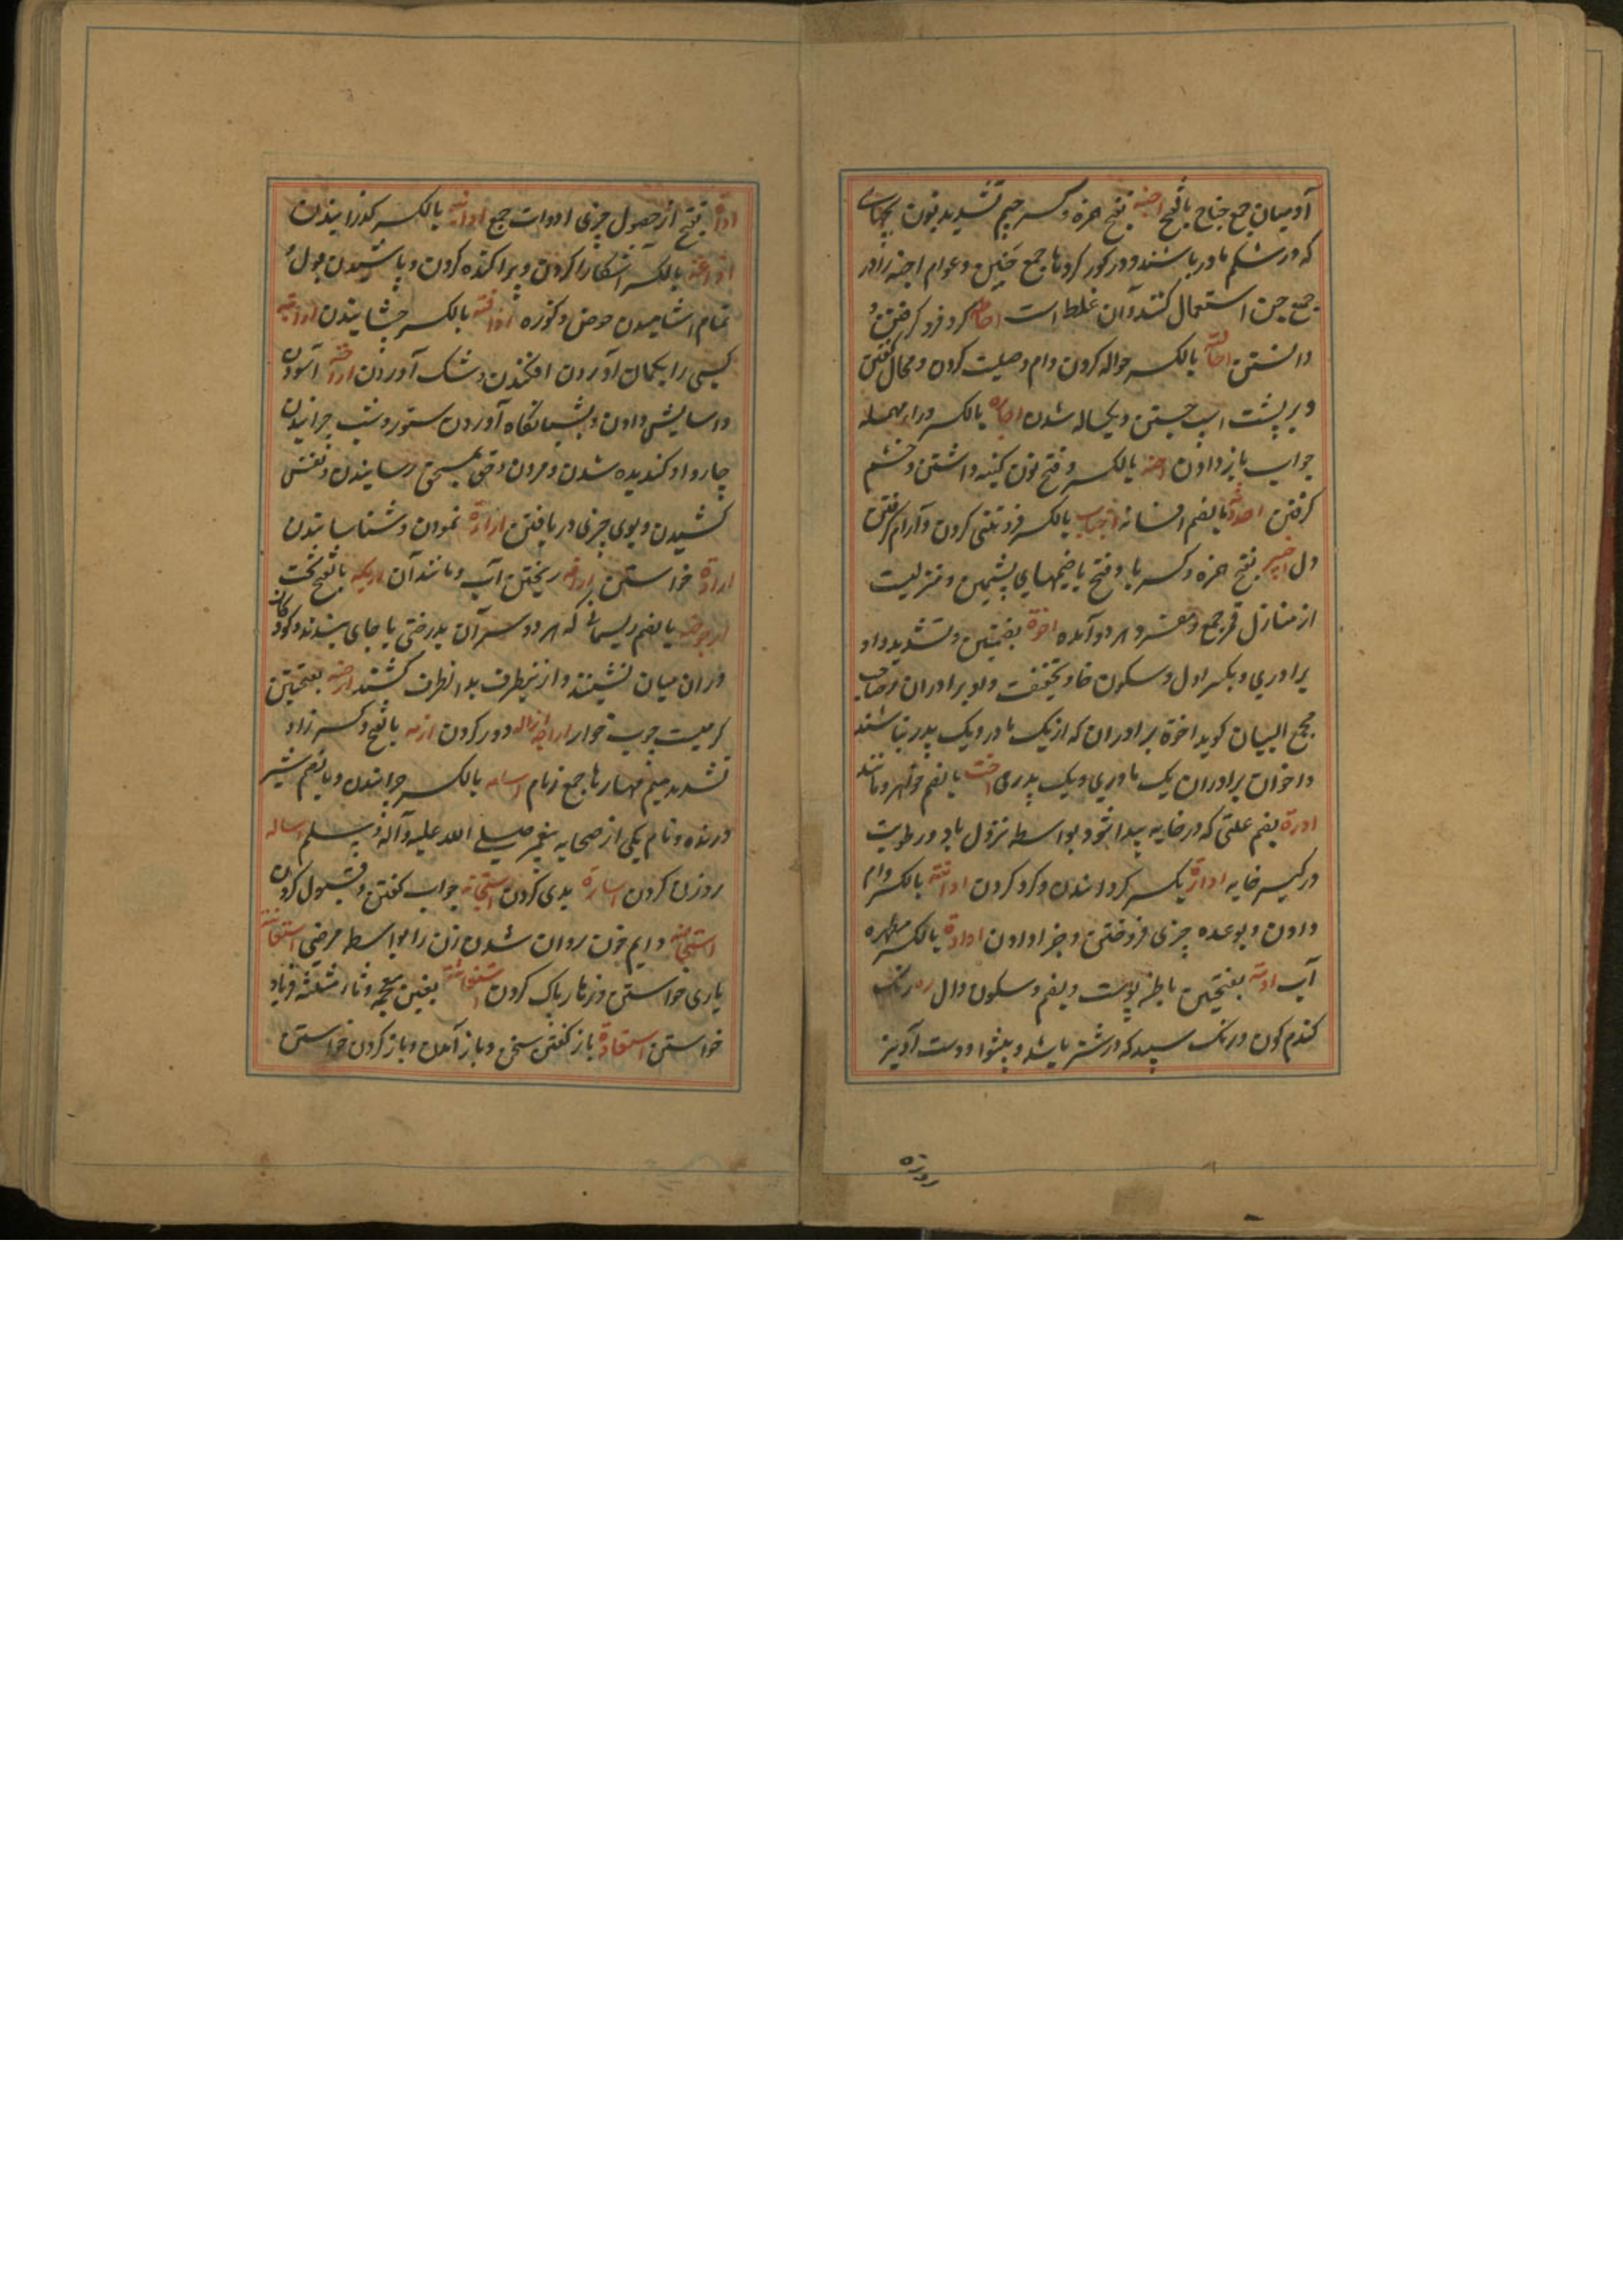 آدمیان جمع جناح بالفتح اجنه بفتح همزه و کسر جیم و تشدید نون بچهای
که در شکم مادر باشند و در کور کردها جمع جنین و عوام اجنه را در
جمع جن استعمال کنند و آن غلط است احاطه کرد فرو کرفتن و
دانستن احاله بالکسر حواله کردن وام و حیلت کردن و محال گفتن
و بر پشت اسپ جستن و یکساله شدن احاره بالکسر و راء مهمله
جواب باز دادن احنه بالکسر و فتح نون کینه داشتن و خشم
کرفتن احدوثه بالضم افسانه اخبات بالکسر فروتنی کردن و آرام کرفتن
دل اخبیه بفتح همزه و کسر با و فتح یا خیمهای پشمین و منزلیست
از منازل قمر جمع و مفرد هر دو آمده اخوة بضمتین و تشدید واو
برادری و بکسر اول و سکون خا و تخفیف واو برادران و صاحب
مجمع البیان کوید اخوة برادران که از یک مادر و یک پدر نباشند
و اخوان برادران یک مادری و یک پدری اخت بالضم خواهر و مانند
ادرة بضم علتی که در خایه پیدا شود بواسطه نزول باد و رطوبت
در کیسه خایه ادارة بکسر کردانیدن و کرد کردن ادانته بالکسر وام
دادن و بوعده چیزی فروختن و جزا دادن اداوة بالکسر مطهره
آب ادمة بفتحتین باطنه پوست و بضم و سکون دال رنک
کندم کون و رنک سپید که در شتر باشد و پیشوا و دست آویز
اداة بفتح از حصول چیزی ادوات جمع بالکسر کذرانیدن
اذاعة بالکسر آشکارا کردن و پراکنده کردن و پاشیدن بول و
تمام آشامیدن حوض و کوزه اذاقة بالکسر چشانیدن ارابة
کسی را بکمان آوردن افکندن و شک آوردن اراحة آسودن
و آسایش دادن و بشبانکاه آوردن ستور و شب چرانیدن
چاروا و کندیده شدن و مردن و حق بمستحق رسانیدن و نفس
کشیدن و بوی چیزی دریافتن ارارة نمودن و شناسانیدن
ارادة خواستن اراقه ریختن آب و مانند آن اریکه بالفتح تخت
ارجوحه بالضم ریسمانی که هر دو سر آن بدرختی یا جای بندند و کودکان
در آن میان نشینند و از نیطرف بدانطرف کشند ارضه بفتحتین
کرمیست چوب خوار ازاله دور کردن ازمه بالفتح و کسر زا و
تشدید میم مهارها جمع زمام اسامه بالکسر چرانیدن و بالضم شیر
درنده و نام یکی از صحابه پیغمبر صلی الله علیه و آله و سلم اساله
روان کردن اساءة بدی کردن استجابة جواب گفتن و قبول کردن
استحاضه دایم خون روان شدن زن را بواسطه مرضی استعانته
یاری خواستن و زهار پاک کردن استغاثته بغین معجمه و ثاء مثلثه فریاد
خواستن استعادة باز کفتن سخن و باز آمدن و باز کردن خواستن